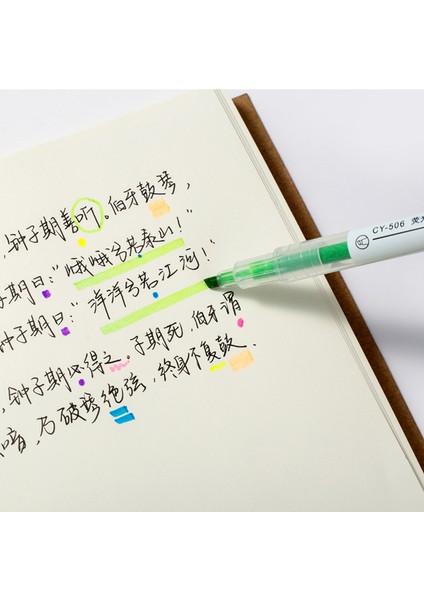 ,钟子期善听。伯牙鼓琴,
子期曰:“哦哦兮若泰山!”
钟子期曰:“洋洋兮若江河!”
,钟子期必得之。子期死,伯牙谓
音,乃破琴绝弦,终身不复鼓.
CY-506 荧光